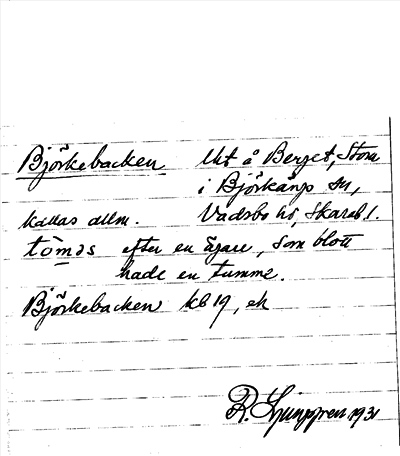 Björkebacken lht å Berget, Stora
i Björkängs sn,
kallas allm. Vadsbo hd, Skarab l.
tòmas efter en ägare, som blott
hade en tumme.
Björkebacken kb 19, ek
R. Ljunggren 1931